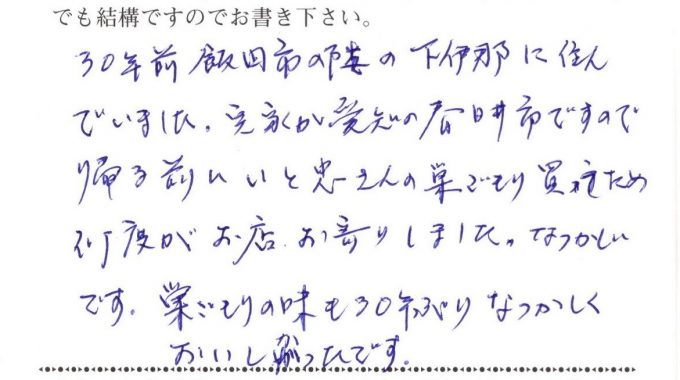 でも結構ですのでお書き下さい。
30年前飯田市の隣の下伊那に住ん
でいました。実家が愛知の春日井市ですので
帰る前にいと忠さんの巣ごもり買ため
何度がお店、お寄りしました。なつかしい
です。巣ごもりの味も30年ぶりなつかしく
おいしかったです。